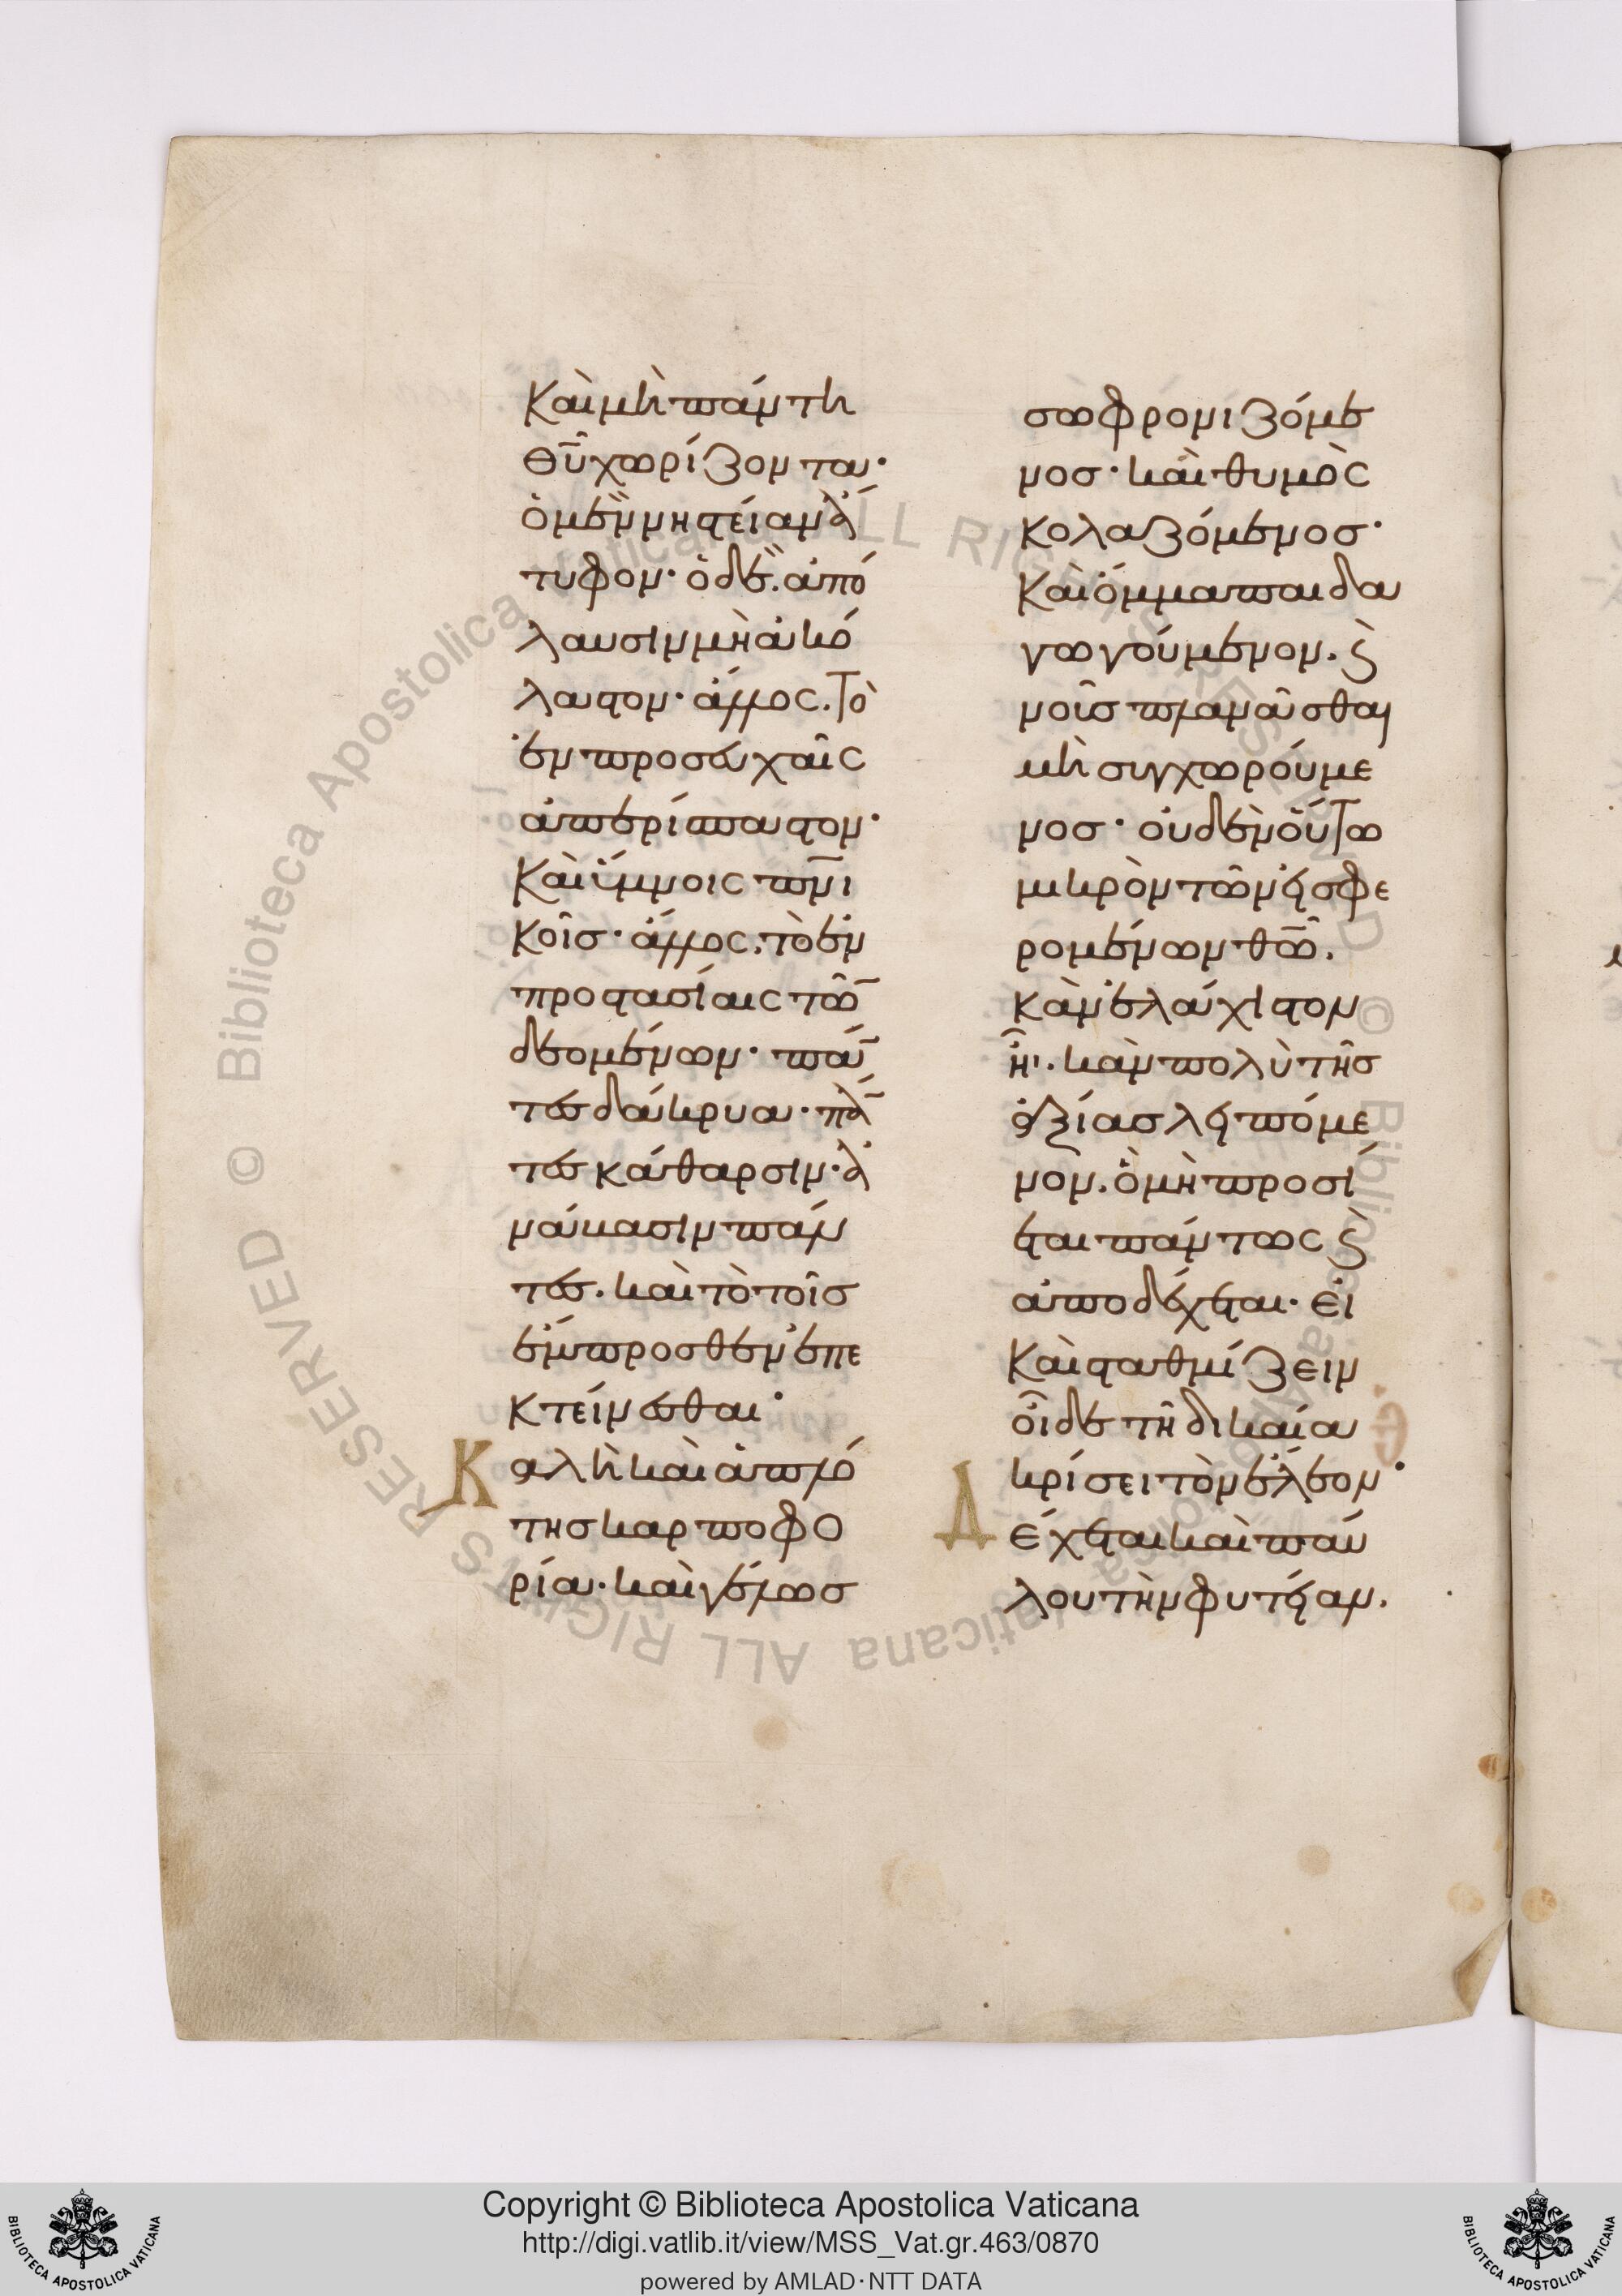 Καὶ μὴ πάντη
θῡ χωρίζονται·
ὁ μὲν νηστείαν ἀ
τυφον· ὁ δὲ ἀπό
λαυσιν μὴ ἀκό
λαστον· ἄλλος. Τὸ
ἐν προσευχαῖς
ἀπερίσπαστον·
Καὶ ὕμνοις πν̅ι
κοῖς· ἄλλος. τὸ ἐν
προστασίαις τῶ̅
δεομένων· πᾶ̅
τες δάκρυα· πά̅
τες κάθαρσιν· ἀ
νάβασιν πάν
τες. καὶ τὸ τοῖς
ἔμπροσθεν ἐπε
κτείνεσθαι·
Καλὴ καὶ ἁπλό
της καρποφο
ρία· καὶ γέλως
σωφρονιζόμε
νος· καὶ θυμὸς
κολαζόμενος·
Καὶ ὄμμα παιδα
γωγούμενον. ϛ̀
νοῦς πλανᾶσθαι
μὴ συγχωρούμε
νος· οὐδὲν οὕτω
μικρὸν τῶν εἰσφε
ρομένων θω̅.
κἂν ἐλάχιστον
ᾖ. κἂν πολὺ τῆς
ἀξίας λειπόμε
νον. ὃ μὴ προσί
εται πάντως ϛ̀
ἀποδέχεται· εἰ
Καὶ σταθμίζειν
οἶδε τῇ δικαία
κρίσει τὸν ἔλεον·
Δέχεται καὶ παύ
λου τὴν φυτείαν.
Copyright © Biblioteca Apostolica Vaticana
http://digi.vatlib.it/view/MSS_Vat.gr.463/0870
powered by AMLAD·NTT DATA
BIBLIOTECA APOSTOLICA VATICANA
BIBLIOTECA APOSTOLICA VATICANA